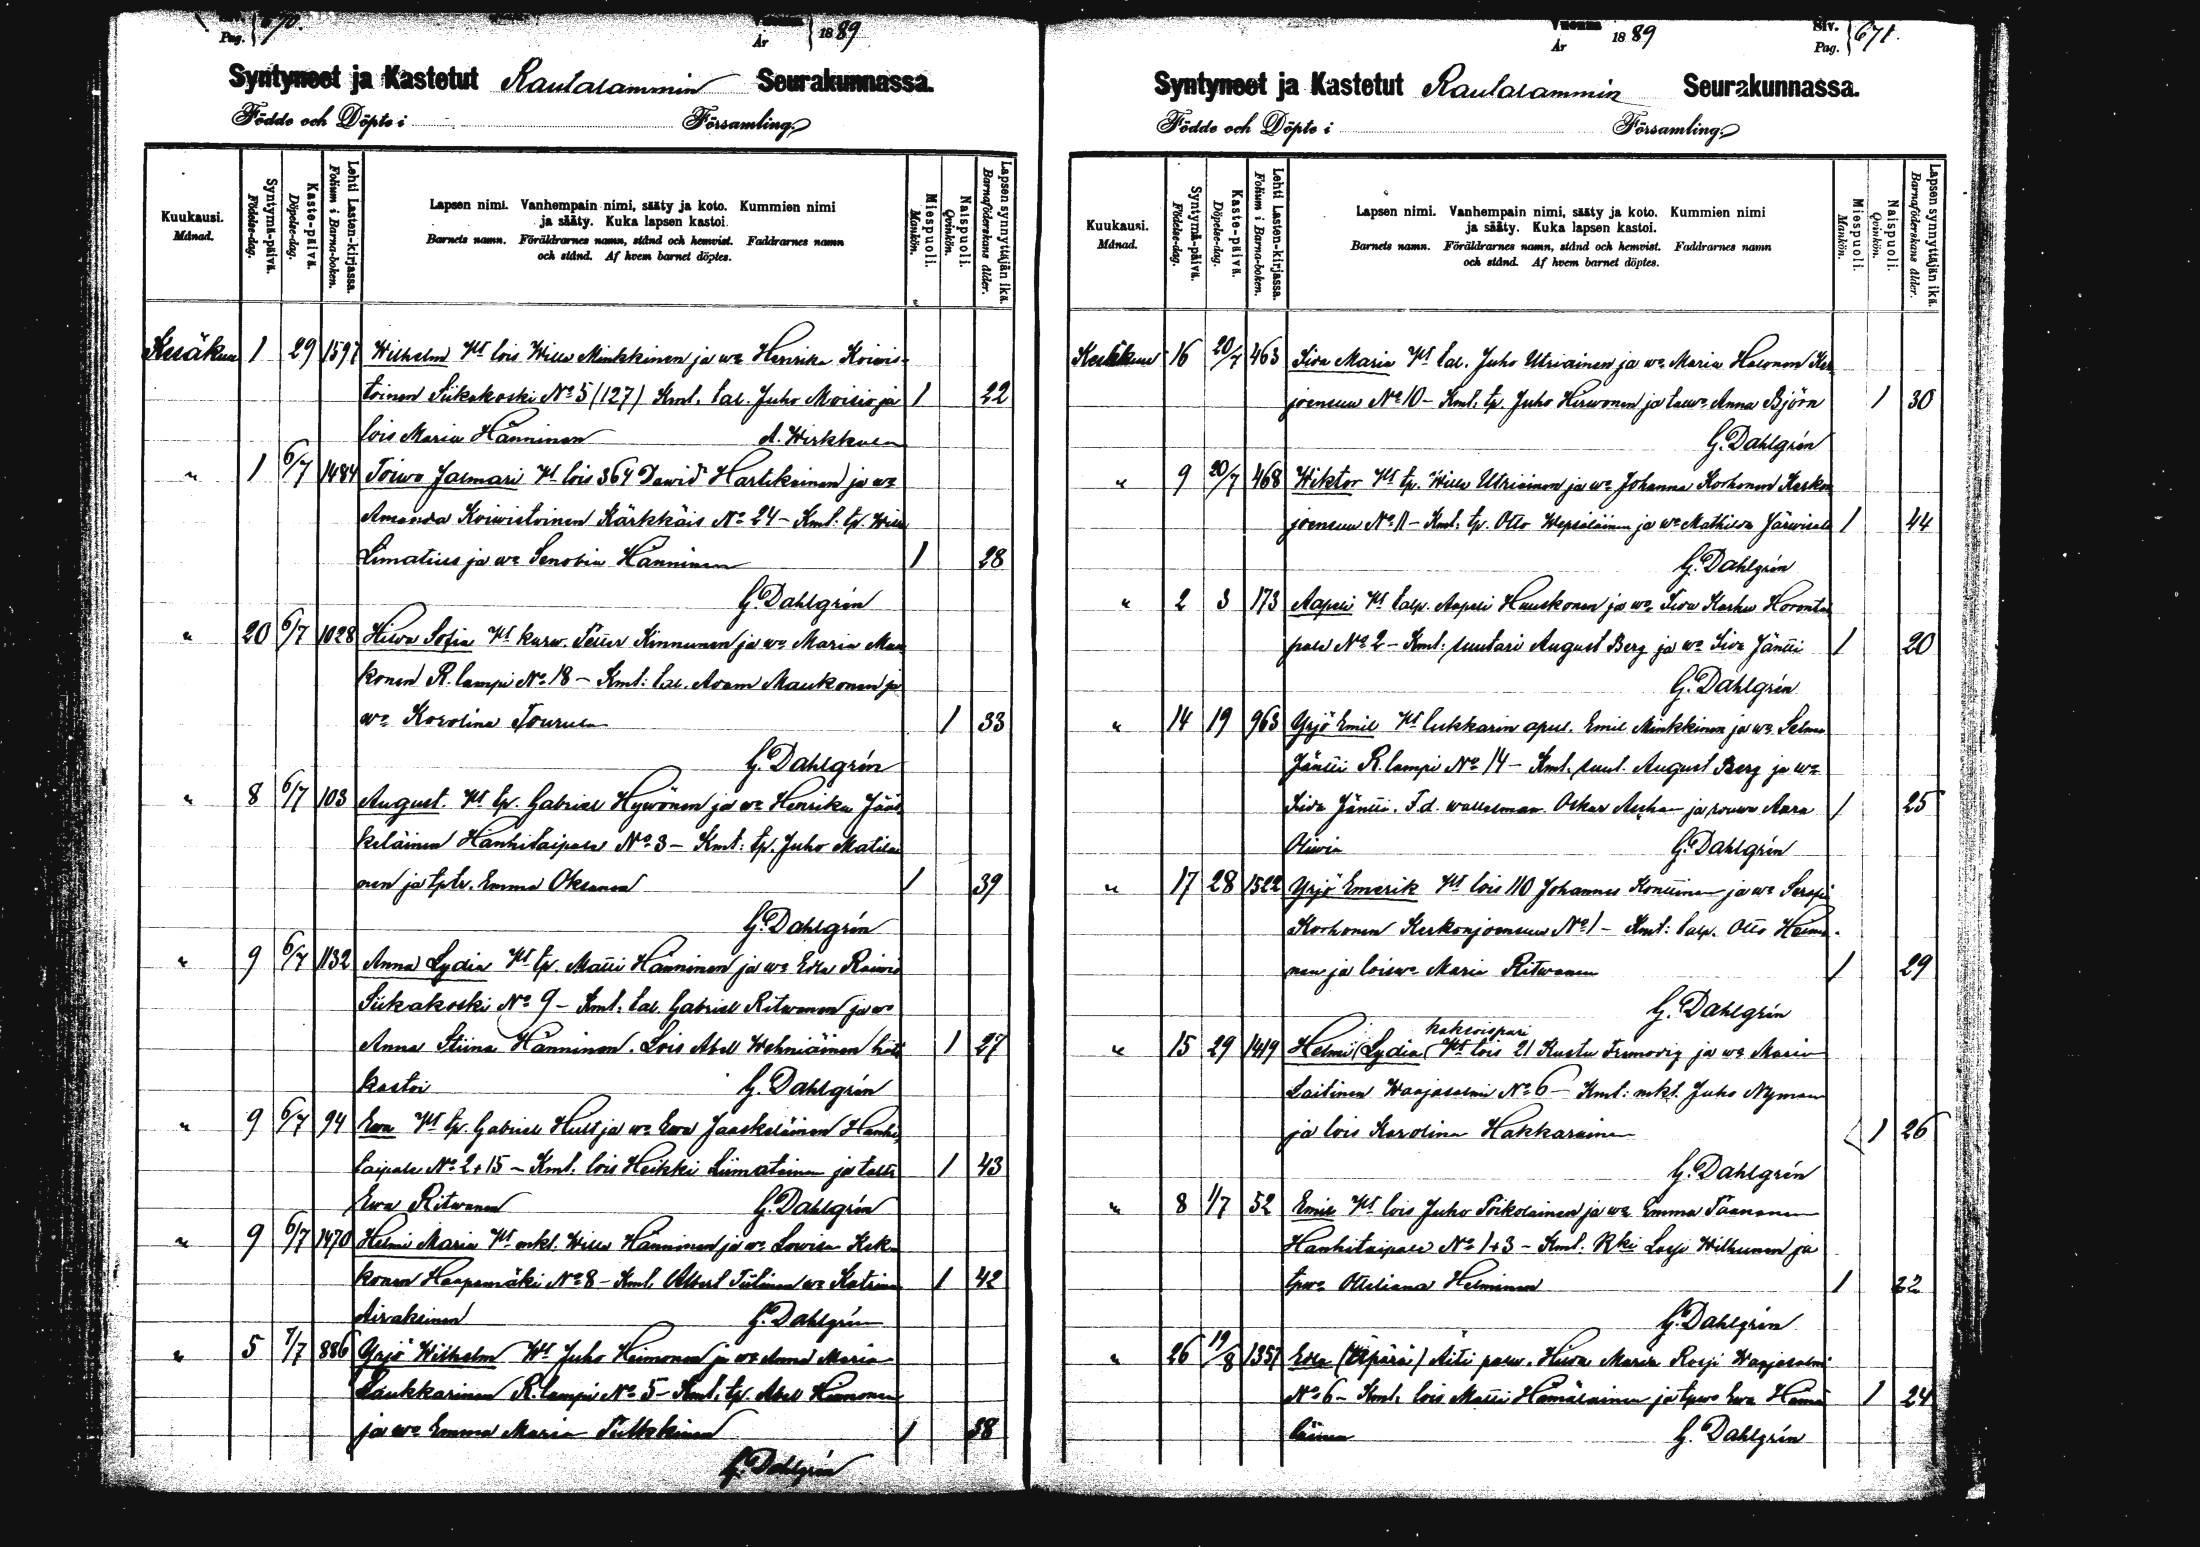 Pag. 670.
År 1889
Syntyneet ja Kastetut Rautalammin Seurakunnassa.
Födde och Döpte i Församling.
Kuukausi. Månad.
Syntymä-päivä. Födelse-dag.
Kaste-päivä. Döpelse-dag.
Lehti Lasten-kirjassa. Folium i Barna-boken.
Lapsen nimi. Vanhempain nimi, sääty ja koto. Kummien nimi
ja sääty. Kuka lapsen kastoi.
Barnets namn. Föräldrarnes namn, stånd och hemvist. Faddrarnes namn
och stånd. Af hvem barnet döptes.
Miespuoli. Mankön.
Naispuoli. Qvinkön.
Lapsen synnyttäjän ikä. Barnaföderskans ålder.
Kesäkuu 1 29 1597 Wilhelm Vst lois Wille Minkkinen ja wo Henrika Koiwis-
toinen Siikakoski No 5 (127) Kml. tal. Juho Moisio ja 1 22
lois Maria Hänninen A. Wirkkula
" 1 6/7 1484 Toiwo Jalmari Vst lois 364 Dawid Hartikainen ja wo
Amanda Koiwistoinen Kärkkäis No 24 – Kml: tp. Wille
Limatius ja wo Senobia Hänninen 1 28
G. Dahlgrén
" 20 6/7 1028 Hilda Sofia Vst karw. Petter Kinnunen ja wo Maria Mau
konen R. lampi No 18 – Kml: tal. Adam Maukonen ja
wo Karolina Tourula 1 33
G. Dahlgrén
" 8 6/7 103 August Vst tp. Gabriel Hywönen ja wo Henrika Jääs
keläinen Hanhitaipale No 3 – Kml: tp. Juho Matilai
nen ja tptr. Emma Oksanen 1 39
G. Dahlgrén
" 9 6/7 1132 Anna Lydia Vst tp. Matti Hänninen ja wo Eda Raiwio
Siikakoski No 9 – Kml. tal. Gabriel Ritwanen ja wo
Anna Stiina Hänninen. Lois Abel Wehniäinen hätä 1 27
kastoi G. Dahlgrén
" 9 6/7 94 Ewa Vst tp. Gabriel Hult ja wo Ewa Jääskeläinen Hanhi
taipale No 2+15 – Kml. lois Heikki Liimatainen ja taltr 1 43
Ewa Ritwanen G. Dahlgrén
" 9 6/7 1470 Helmi Maria Vst mkl. Wille Hänninen ja wo Lowisa Kek
konen Haapamäki No 8 – Kml. Albert Tiilinen wo Katrina 1 42
Airaksinen G. Dahlgrén
" 5 7/7 886 Yrjö Wilhelm Vst Juho Heimonen ja wo Anna Maria
Laukkarinen R. lampi No 5 – Kml. tp. Abel Hinnonen
ja wo Emma Maria Tulkkinen 1 38
G. Dahlgrén
Vuonna År 1889
Siv. Pag. 671.
Syntyneet ja Kastetut Rautalammin Seurakunnassa.
Födde och Döpte i Församling.
Kuukausi. Månad.
Syntymä-päivä. Födelse-dag.
Kaste-päivä. Döpelse-dag.
Lehti Lasten-kirjassa. Folium i Barna-boken.
Lapsen nimi. Vanhempain nimi, sääty ja koto. Kummien nimi
ja sääty. Kuka lapsen kastoi.
Barnets namn. Föräldrarnes namn, stånd och hemvist. Faddrarnes namn
och stånd. Af hvem barnet döptes.
Miespuoli. Mankön.
Naispuoli. Qvinkön.
Lapsen synnyttäjän ikä. Barnaföderskans ålder.
Kesäkuu 16 20/7 463 Iida Maria Vst tal. Juho Utriainen ja wo Maria Halonen Ker
joensuu No 10 – Kml. tp. Juho Hirwonen ja talwo Anna Björn 1 30
G. Dahlgrén
" 9 20/7 468 Wiktor Vst tp. Wille Utriainen ja wo Johanna Korhonen Kerkon
joensuu No 11 – Kml. tp. Otto Wepsäläinen ja wo Mathilda Järwiselä 1 44
G. Dahlgrén
" 2 3 173 Aapeli Vst talp. Aapeli Hauskonen ja wo Iida Karhu Horonta
pale No 2 – Kml. suutari August Berg ja wo Iida Jäntti 1 20
G. Dahlgrén
" 14 19 963 Yrjö Emil Vst lukkarin apul. Emil Minkkinen ja wo Selma
Jäntti R. lampi No 14 – Kml. suut. August Berg ja wo
Iida Jäntti. T.d. wallesman Oskar ja rouwa Aura 1 25
Oliwia G. Dahlgrén
" 17 28 1522 Yrjö Emerik Vst lois 110 Johannes Konttinen ja wo Serafia
Korhonen Kerkonjoensuu No 1 – Kml: talp. Otto Heimo-
nen ja loiswo Maria Ritwanen 1 29
G. Dahlgrén
kaksoispari
" 15 29 1419 Helmi (Lydia) Vst lois 21 Kustu Fremodig ja wo Maria
Laitinen Waajasalmi No 6 – Kml: mkl. Juho Nyman
ja lois Karolina Hakkarainen 1 26
G. Dahlgrén
" 8 1/7 52 Emil Vst lois Juho Toikolainen ja wo Emma Taanonen
Hanhitaipale No 1+3 – Kml. Rki Lassi Wilhunen ja
tpwo Otteliana Helminen 1 22
G. Dahlgrén
" 26 19/8 1351 Eda (Äpärä) Äiti palw. Hilda Maria Rossi Waajasalmi
No 6 – Kml. lois Matti Hämäläinen ja tpwo Ewa Hämä 1 24
läinen G. Dahlgrén